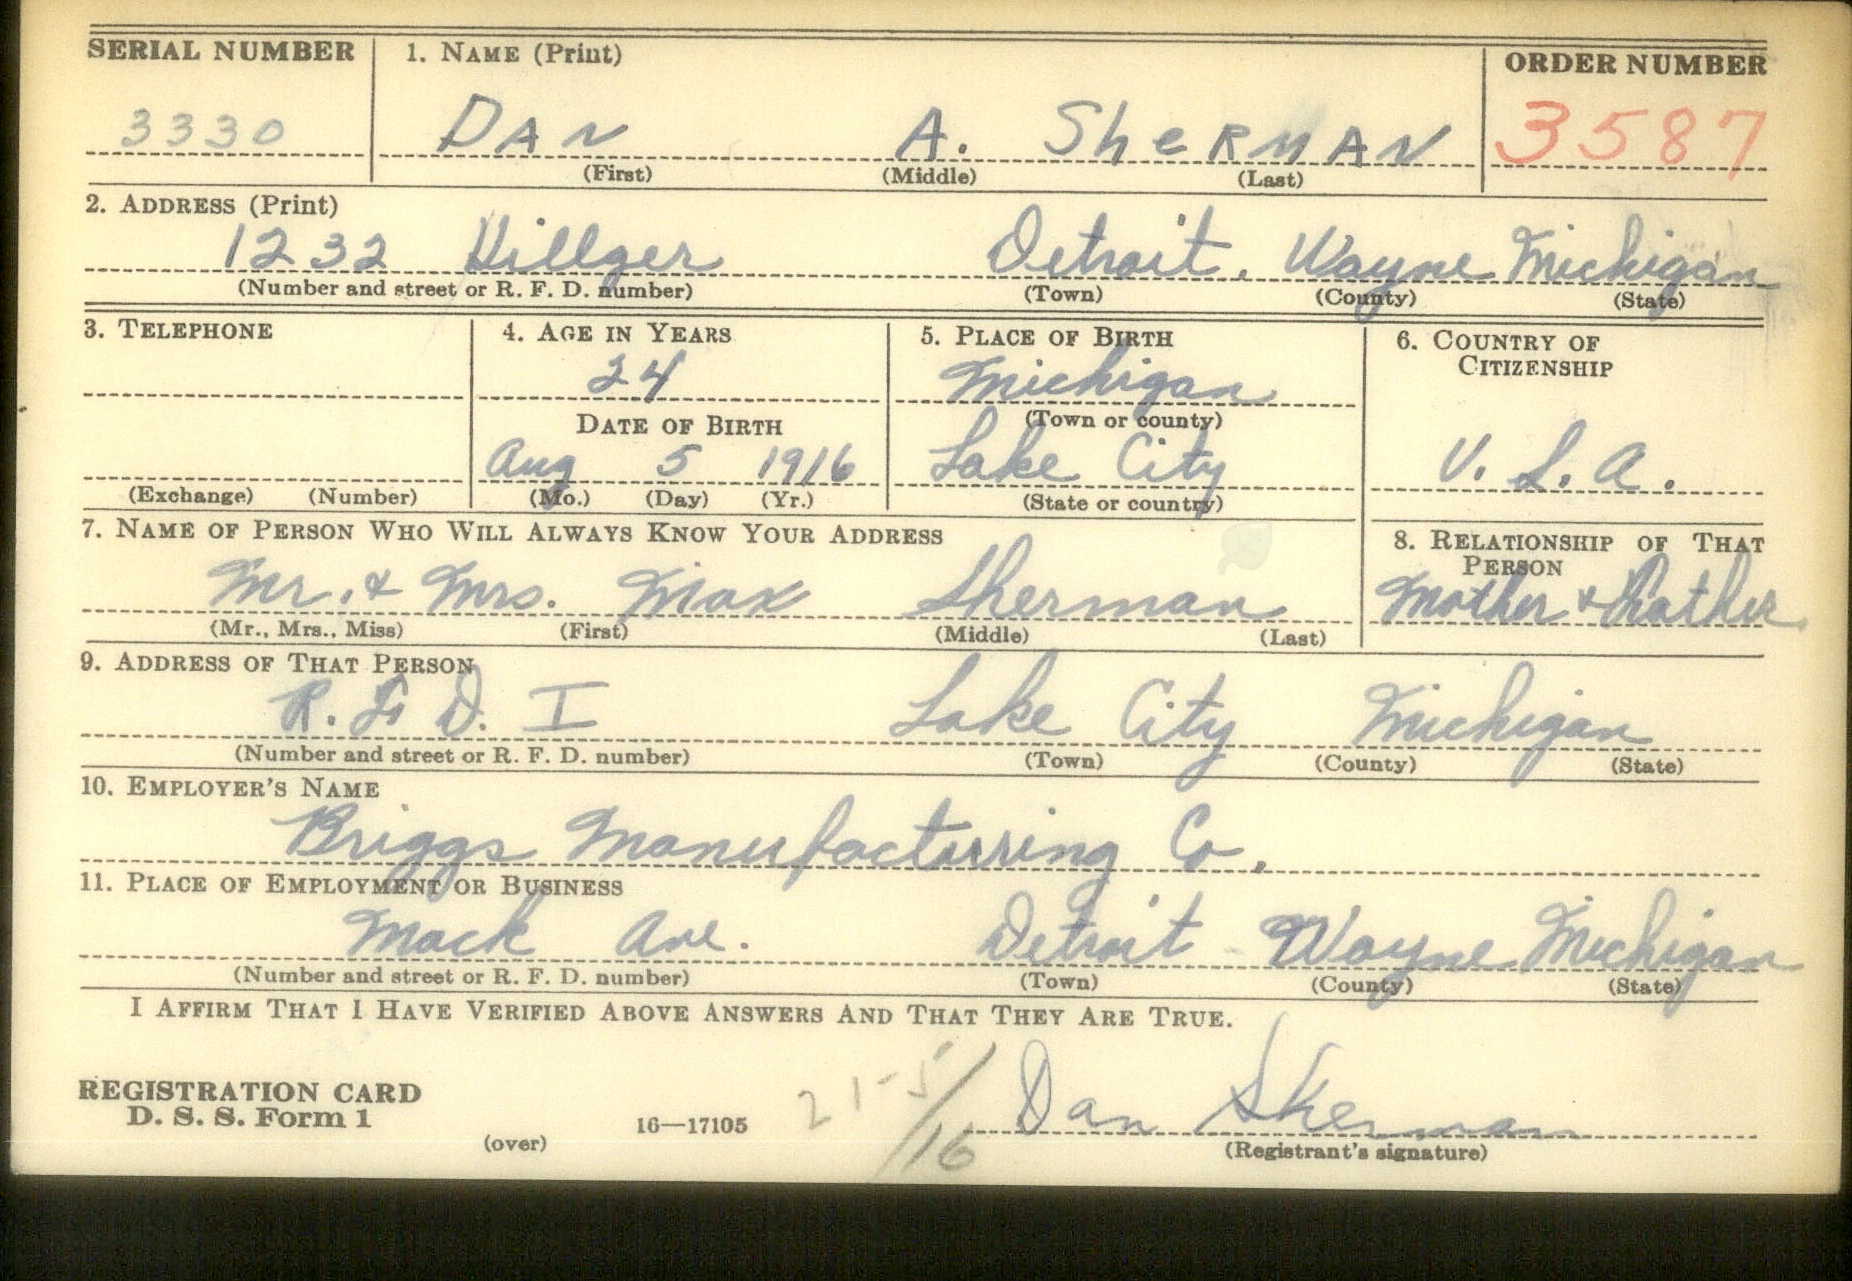 SERIAL NUMBER 1. NAME (Print) ORDER NUMBER
3330 DAN A. SheRMAN 3587
(First) (Middle) (Last)
2. ADDRESS (Print)
1232 Hillger Detroit. Wayne Michigan
(Number and street or R. F. D. number) (Town) (County) (State)
3. TELEPHONE 4. AGE IN YEARS 5. PLACE OF BIRTH 6. COUNTRY OF CITIZENSHIP
24 Michigan
DATE OF BIRTH (Town or county)
Aug 5 1916 Lake City U. S. A.
(Exchange) (Number) (Mo.) (Day) (Yr.) (State or country)
7. NAME OF PERSON WHO WILL ALWAYS KNOW YOUR ADDRESS 8. RELATIONSHIP OF THAT PERSON
Mr. & Mrs. Max Sherman Mother & Father
(Mr., Mrs., Miss) (First) (Middle) (Last)
9. ADDRESS OF THAT PERSON
R. F. D. I Lake City Michigan
(Number and street or R. F. D. number) (Town) (County) (State)
10. EMPLOYER'S NAME
Briggs Manufacturring Co.
11. PLACE OF EMPLOYMENT OR BUSINESS
Mack Ave. Detroit Wayne Michigan
(Number and street or R. F. D. number) (Town) (County) (State)
I AFFIRM THAT I HAVE VERIFIED ABOVE ANSWERS AND THAT THEY ARE TRUE.
REGISTRATION CARD
D. S. S. Form 1
(over) 16—17105 21-5/16 Dan Sherman
(Registrant's signature)